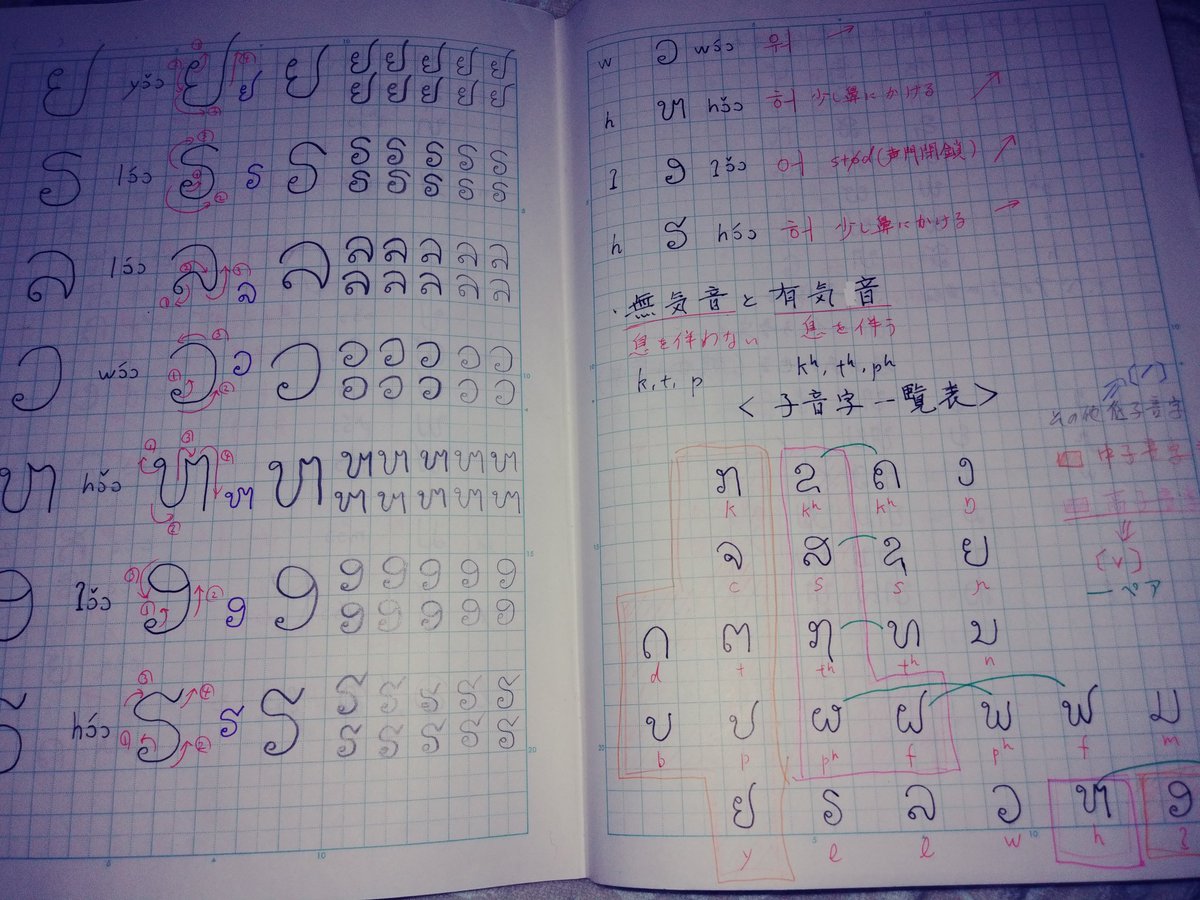 ຢ yɔ̌ɔ ຢ ຢ ຢ ຢ ຢ ຢ ຢ ຢ
ຢ ຢ ຢ ຢ ຢ
ຣ lɔ́ɔ ຣ ຣ ຣ ຣ ຣ ຣ ຣ ຣ
ຣ ຣ ຣ ຣ ຣ
ລ lɔ́ɔ ລ ລ ລ ລ ລ ລ ລ ລ
ລ ລ ລ ລ ລ
ວ wɔ́ɔ ວ ວ ວ ວ ວ ວ ວ ວ
ວ ວ ວ ວ ວ
ຫ hɔ̌ɔ ຫ ຫ ຫ ຫ ຫ ຫ ຫ ຫ
ຫ ຫ ຫ ຫ ຫ
ອ ʔɔ̌ɔ ອ ອ ອ ອ ອ ອ ອ ອ
ອ ອ ອ ອ ອ
ຮ hɔ́ɔ ຮ ຮ ຮ ຮ ຮ ຮ ຮ ຮ
ຮ ຮ ຮ ຮ ຮ
w ວ wɔ́ɔ 워 →
h ຫ hɔ̌ɔ 허 少し鼻にかける
ʔ ອ ʔɔ̌ɔ 어 (声門閉鎖)
h ຮ hɔ́ɔ 허 少し鼻にかける →
・無気音と有気音
息を伴わない 息を伴う
k, t, p kʰ, tʰ, pʰ
<子音字一覧表>
その他低子音字
中子音字
高子音字
[v]
ーペア
ກ ຂ ຄ ງ
k kʰ kʰ ŋ
ຈ ສ ຊ ຍ
c s s ɲ
ດ ຕ ຖ ທ ນ
d t tʰ tʰ n
ບ ປ ຜ ຝ ພ ຟ ມ
b p pʰ f pʰ f m
ຢ ຣ ລ ວ ຫ ອ
y l l w h ʔ